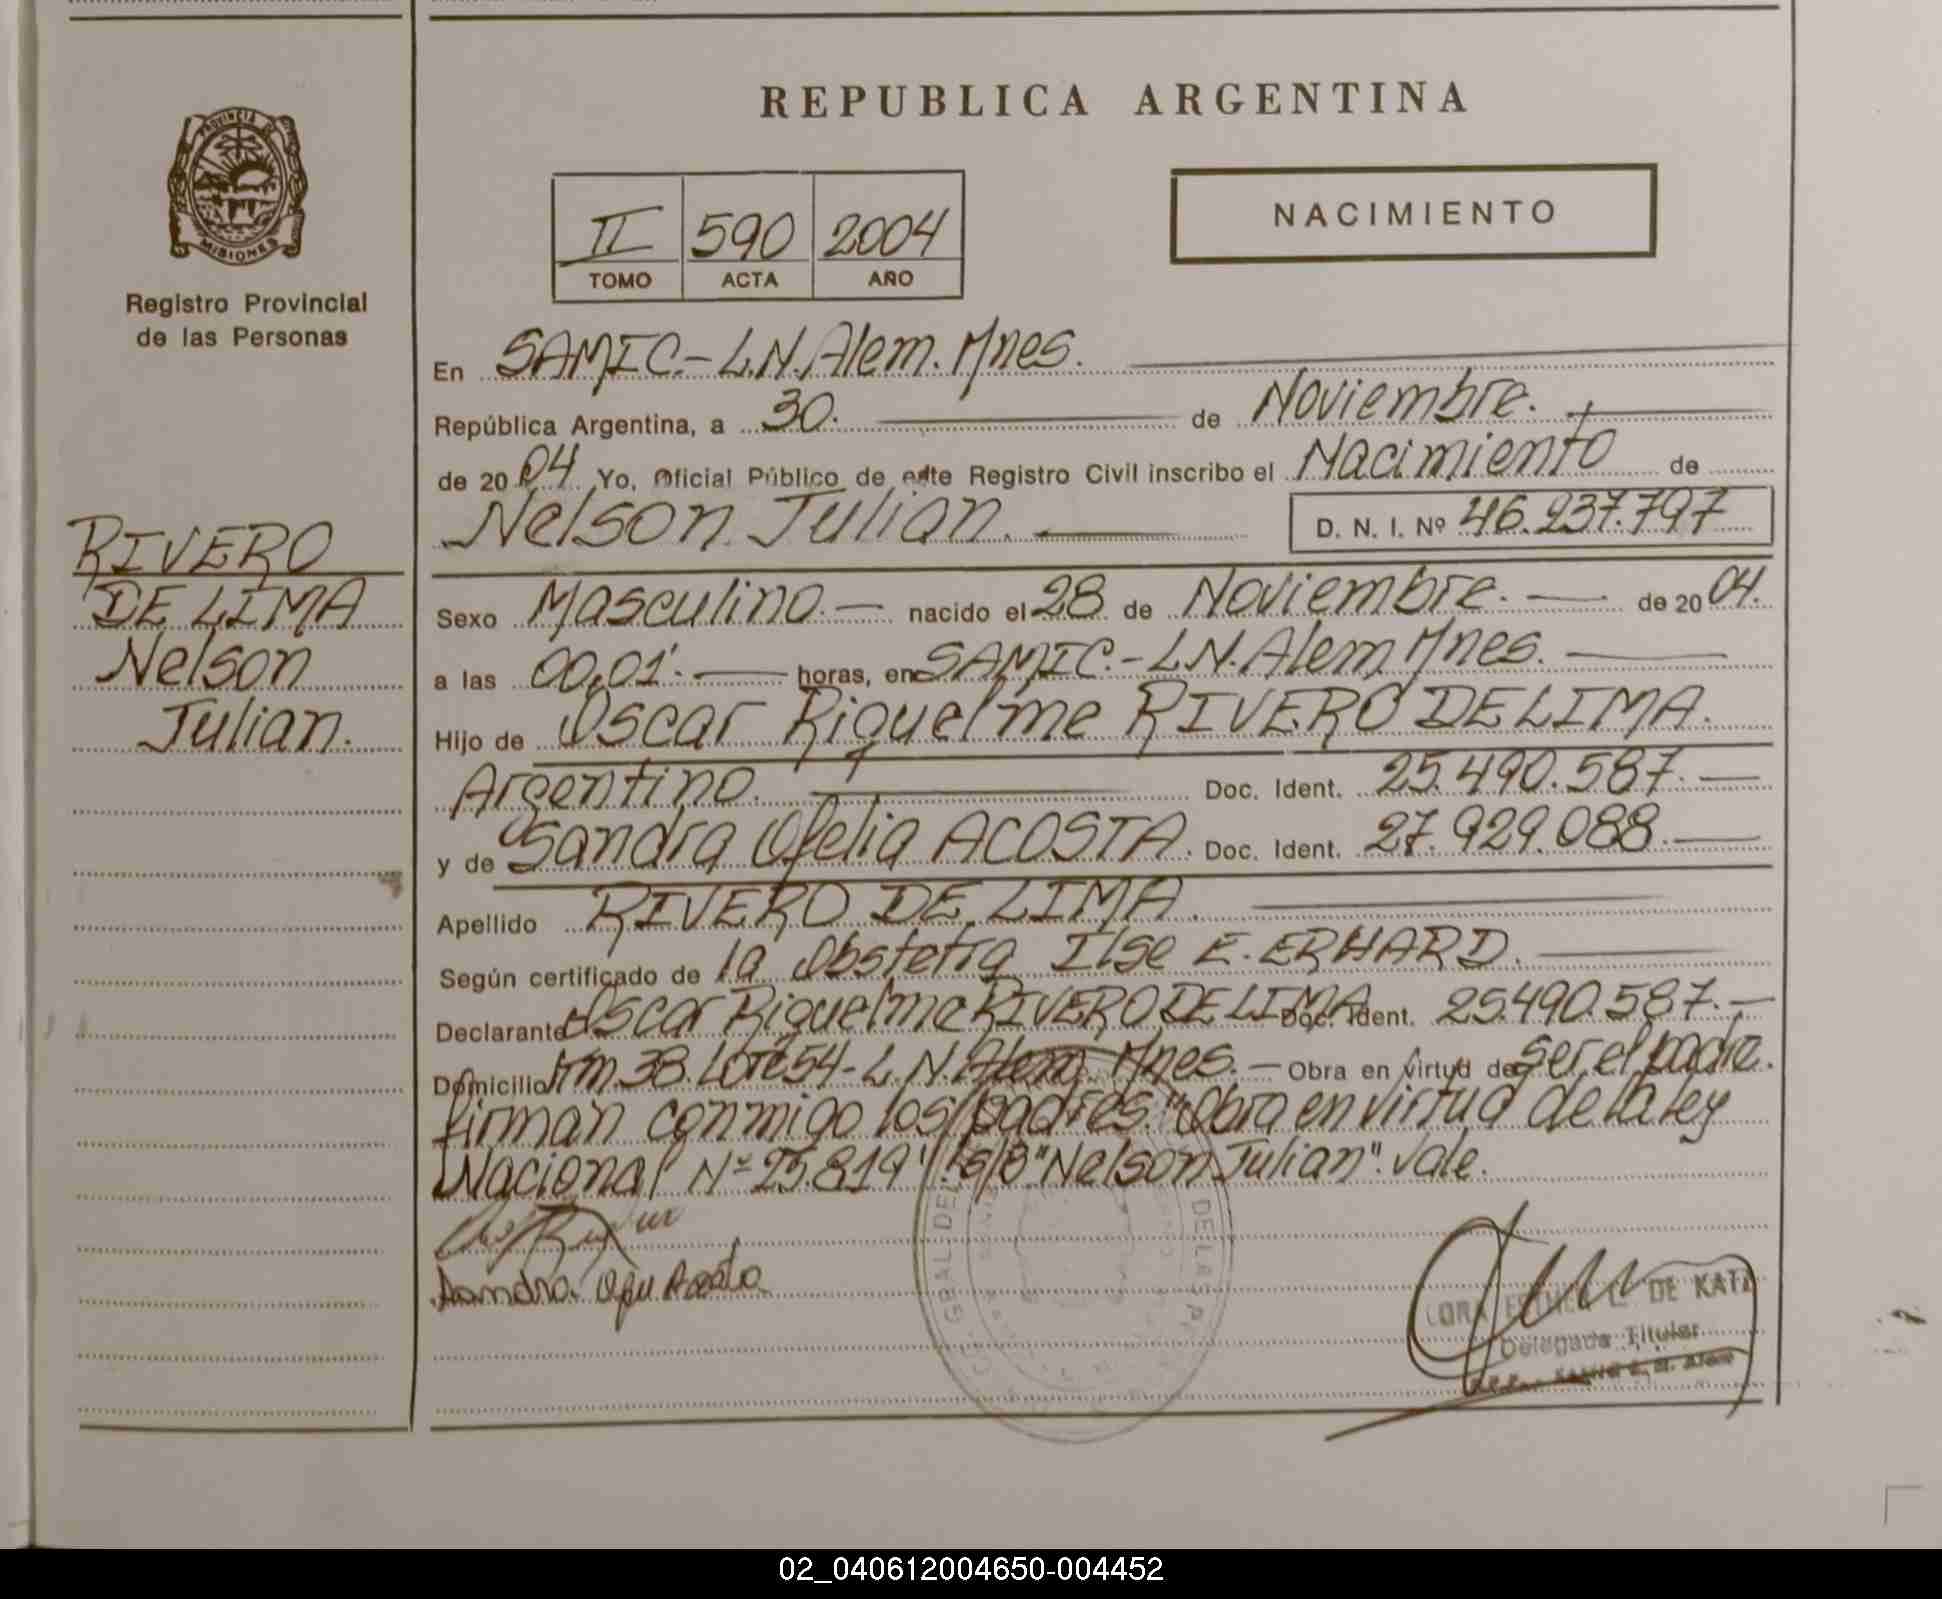 REPUBLICA ARGENTINA
PROVINCIA DE
MISIONES
Registro Provincial
de las Personas
II 590 2004
TOMO ACTA AÑO
NACIMIENTO
RIVERO
DE LIMA
Nelson
Julian.
En SAMIC.- L.N. Alem. Mnes.
República Argentina, a 30. de Noviembre.
de 2004 Yo, Oficial Público de este Registro Civil inscribo el Nacimiento de
Nelson Julian. D. N. I. Nº 46.237.797
Sexo Masculino. nacido el 28 de Noviembre. de 2004.
a las 00,01'. horas, en SAMIC.- L.N. Alem Mnes.
Hijo de Oscar Riquelme RIVERO DE LIMA.
Argentino. Doc. Ident. 25.490.587.
y de Sandra Ofelia ACOSTA. Doc. Ident. 27.929.088.
Apellido RIVERO DE LIMA.
Según certificado de la Obstetra Ilse E. ERHARD.
Declarante Oscar Riquelme RIVERO DE LIMA Doc. Ident. 25.490.587.
Domicilio Km.38. Lote 54 - L.N. Alem. Mnes. Obra en virtud de Ser el padre.
firman conmigo los padres. "Obra en virtud de la ley
Nacional Nº 25.819". S/B "Nelson Julian". Vale.
Sandra Acosta
DE KATZ
Delegada Titular
02_040612004650-004452